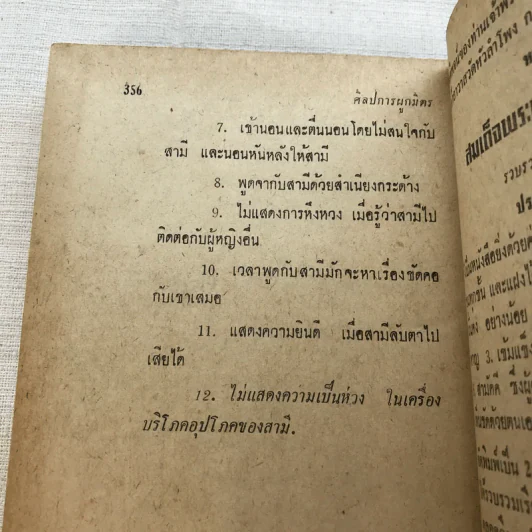 356
ศิลปการผูกมิตร
7. เข้านอนและตื่นนอนโดยไม่สนใจกับ
สามี และนอนหันหลังให้สามี
8. พูดจากับสามีด้วยสำเนียงกระด้าง
9. ไม่แสดงการหึงหวง เมื่อรู้ว่าสามีไป
ติดต่อกับผู้หญิงอื่น
10. เวลาพูดกับสามีมักจะหาเรื่องขัดคอ
กับเขาเสมอ
11. แสดงความยินดี เมื่อสามีลับตาไป
เสียได้
12. ไม่แสดงความเป็นห่วง ในเครื่อง
บริโภคอุปโภคของสามี.
สมเด็จพระ
อย่างน้อย
3. เข้มแข็ง
สามัคคี ซึ่งผู้